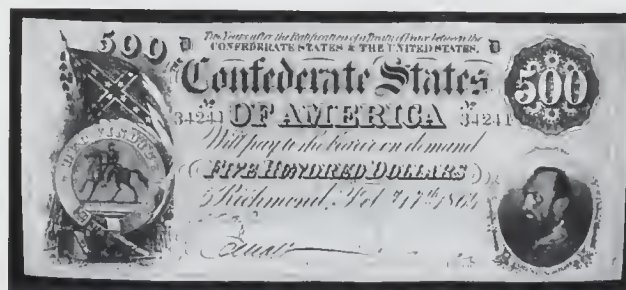 500 D Two Years after the Ratification of a Treaty of Peace between the D
CONFEDERATE STATES & THE UNITED STATES.
Confederate States
500
No 34241 OF AMERICA No 34241
Will pay to the bearer on demand
FIVE HUNDRED DOLLARS
Richmond, Feb 17th 1864
DEO VINDICE